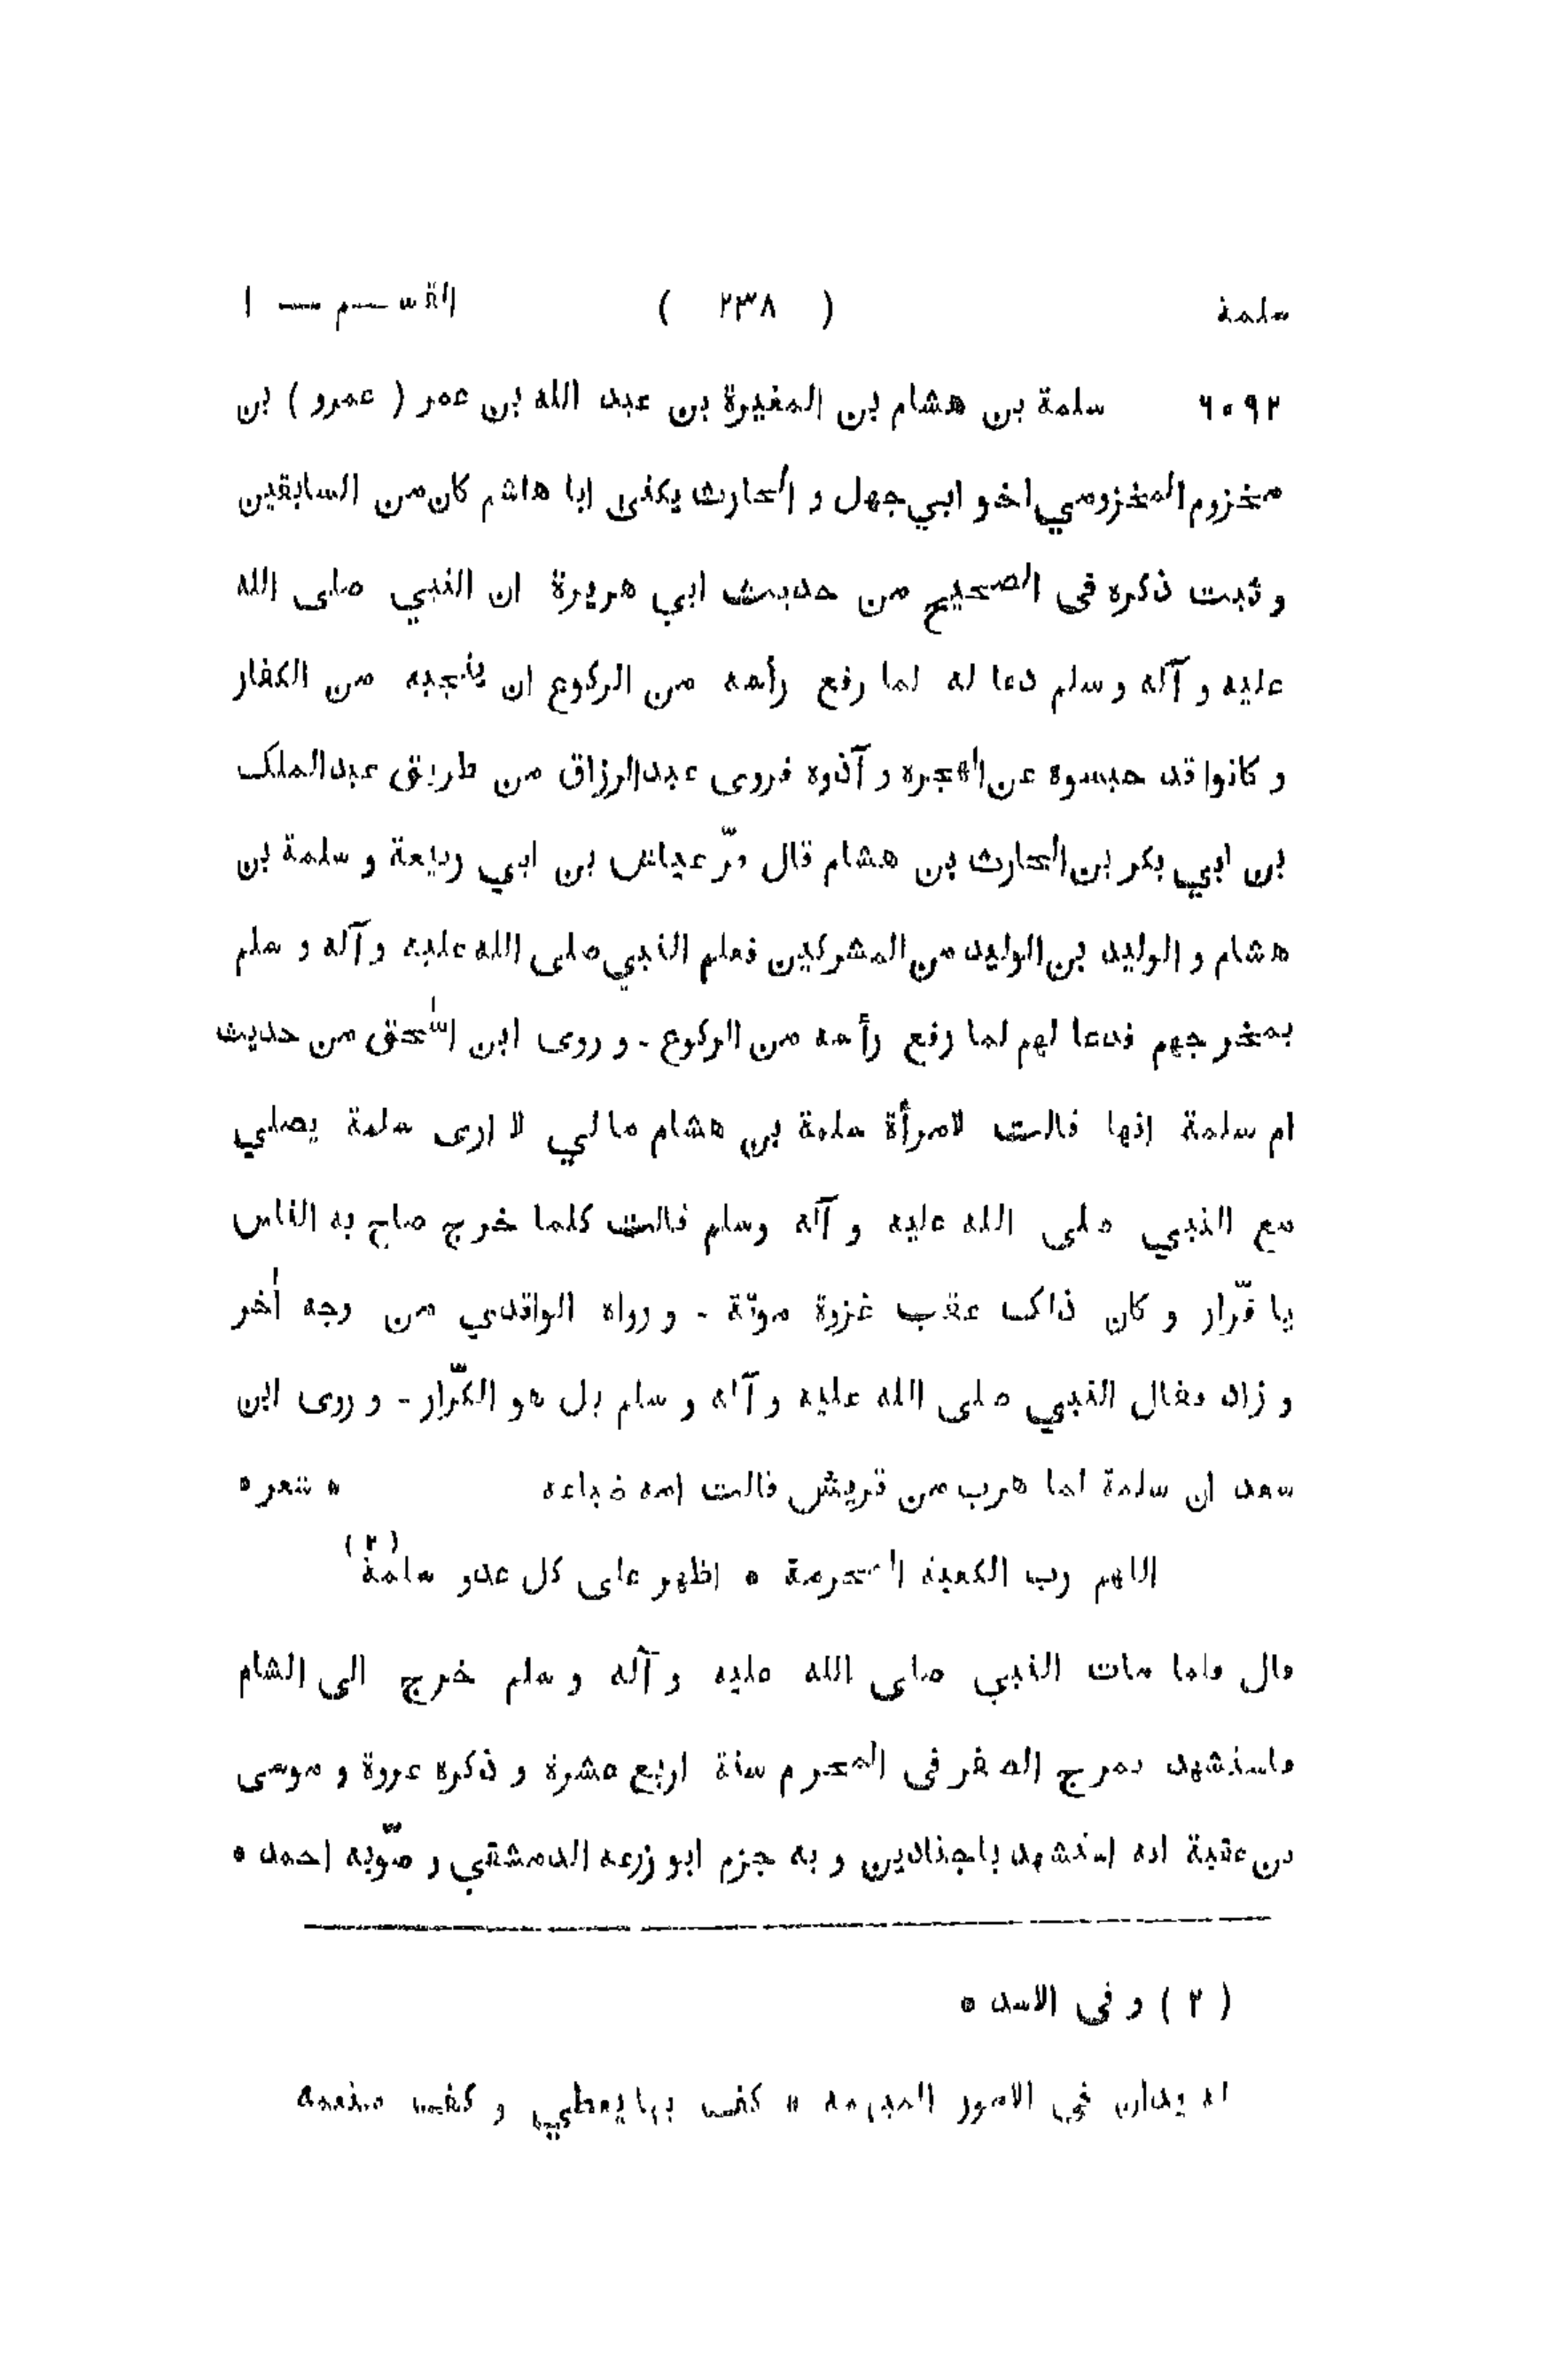 سلمة ( ٢٣٨ ) القســم — ١
٦٠٩٢ سلمة بن هشام بن المغيرة بن عبد الله بن عمر ( عمرو ) بن
مخزوم المخزومي اخو ابي جهل و الحارث يكنى ابا هاشم كان من السابقين
و ثبت ذكره فى الصحيح من حديث ابي هريرة ان النبي صلى الله
عليه و آله و سلم دعا له لما رفع رأسه من الركوع ان ينجيه من الكفار
و كانوا قد حبسوه عن الهجره و آذوه فروى عبد الرزاق من طريق عبد الملك
بن ابي بكر بن الحارث بن هشام قال فرّ عياش بن ابي ربيعة و سلمة بن
هشام و الوليد بن الوليد من المشركين فعلم النبي صلى الله عليه و آله و سلم
بمخرجهم فدعا لهم لما رفع رأسه من الركوع - و روى ابن اسٰحق من حديث
ام سلمة انها قالت لامرأة سلمة بن هشام مالي لا ارى سلمة يصلي
مع النبي صلى الله عليه و آله وسلم قالت كلما خرج صاح به الناس
يا فرّار و كان ذلك عقب غزوة موتة - و رواه الواقدي من وجه اٰخر
و زاد فقال النبي صلى الله عليه و آله و سلم بل هو الكرّار - و روى ابن
سعد ان سلمة لما هرب من قريش قالت امه ضباعه * شعر *
اللهم رب الكعبة المحرمة * اظهر على كل عدو سلمة (٢)
قال فلما مات النبي صلى الله عليه و آله و سلم خرج الى الشام
فاستشهد بمرج الصفر فى المحرم سنة اربع عشرة و ذكره عروة و موسى
بن عقبة انه استشهد باجنادين و به جزم ابو زرعه الدمشقي و صوّبه احمد *
( ٢ ) و فى الاسد *
له يدان فى الامور المبهمه * كف بها يعطي و كف منعمه